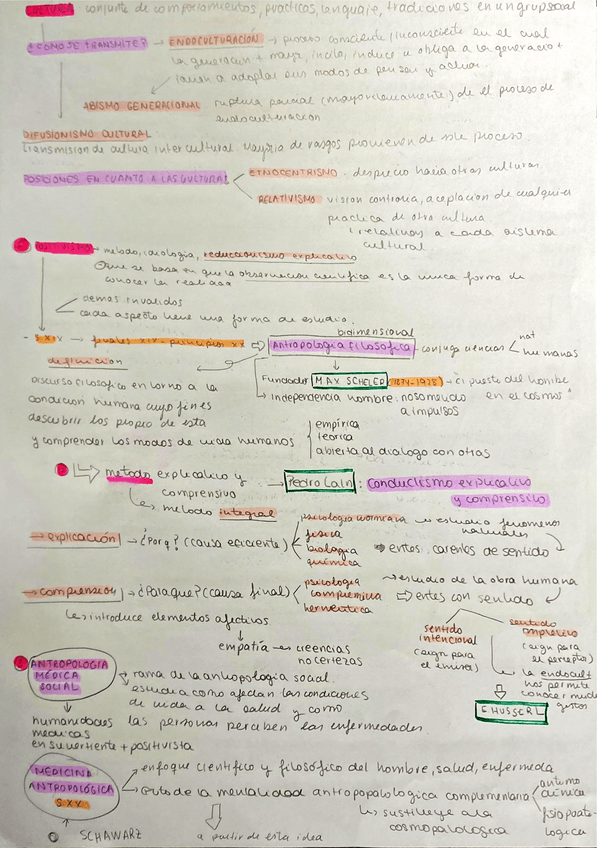 CULTURA conjunto de comportamientos, prácticas, lenguaje, tradiciones en un grup social
¿CÓMO SE TRANSMITE? → ENDOCULTURACIÓN → proceso consciente/inconsciente en el cual
la generación + mayor incita, induce u obliga a la generación +
joven a adoptar sus modos de pensar y actuar.
ABISMO GENERACIONAL ruptura parcial (mayor o de el proceso de
endoculturación
DIFUSIONISMO CULTURAL
transmisión de cultura intercultural mayoría de rasgos provienen de este proceso
POSICIONES EN CUANTO A LAS CULTURAL
ETNOCENTRISMO desprecio hacia otras culturas
RELATIVISMO visión contraria, aceptación de cualquier
práctica de otra cultura
relativas a cada sistema
cultural
POSITIVISMO → método, ideología, reduccionismo explicativo
que se basa en que la observación científica es la única forma de
conocer la realidad
demás inválidos
cada aspecto tiene una forma de estudio
bidimensional
- S.XIX → finales XIX - principios XX ⇒ Antropología Filosófica - conjuga ciencias < nat
humanas
definición
Fundador MAX SCHELER (1874-1928) → "el puesto del hombre
en el cosmos"
independencia hombre: no sometido
a impulsos
Discurso filosófico en torno a la
condición humana cuyo fin es
descubrir los propio de esta
y comprender los modos de vida humanos
empírica
teórica
abierta al diálogo con otras
método explicativo y
comprensivo
↳ método integral
→ Pedro Laín: conductismo explicativo
y comprensivo
→ explicación → ¿Por q? (causa eficiente)
psicología → estudia fenómenos
naturales
física
biología
química
⇒ entes carentes de sentido
→ comprensión → ¿Para que? (causa final)
psicología
comprensiva
hermeútica
→ estudio de la obra humana
⇒ entes con sentido
↳ introduce elementos afectivos
empatía → creencias
no certezas
sentido
intencional
(asign para
el emisor)
sentido
(asign para
el perceptor)
↳ la endocult
nos permite
conocer
gestos
E HUSSERL
ANTROPOLOGÍA
MÉDICA
SOCIAL
→ rama de la antropología social
→ estudia como afectan las condiciones
de vida a la salud y como
las personas perciben las enfermedades
humanidades
médicas
en su vertiente + positivista
MEDICINA
ANTROPOLÓGICA
S.XX
→ enfoque científico y filosófico del hombre, salud, enfermeda
de la mentalidad antropopatológica complementaria
clínica
fisiopato-
logica
↳ sustituye a la
cosmopatologica
SCHAWARZ
a partir de esta idea